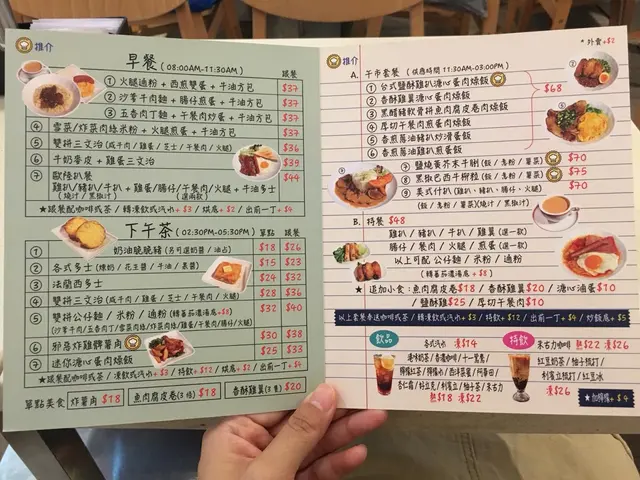 推介
早餐 (08:00AM-11:30AM) 跟餐
① 火腿通粉 + 西煎雙蛋 + 牛油方包 $37
② 沙爹牛肉麵 + 腸仔煎蛋 + 牛油方包 $37
③ 五香肉丁麵 + 午餐肉炒蛋 + 牛油方包 $37
④ 雪菜/炸菜肉絲米粉 + 火腿煎蛋 + 牛油方包 $37
⑤ 雙拼三文治 (咸牛肉/雞蛋/芝士/午餐肉/火腿) $36
⑥ 牛奶麥皮 + 雞蛋三文治 $39
⑦ 歐陸扒餐 $44
雞扒/豬扒/牛扒 + 雞蛋/腸仔/午餐肉/火腿 + 牛油多士
(燒汁/黑椒汁) (選兩款)
★跟餐配咖啡式茶/轉凍飲式汽水+$3/烘底+$2/出前一丁+$4
下午茶 (02:30PM-05:30PM)
單點 跟餐
① 奶油脆脆豬 (另可選奶醬/油占) $18 $26
② 各式多士 (煉奶/花生醬/牛油/果醬) $15 $23
③ 法蘭西多士 $24 $32
④ 雙拼三文治 (咸牛肉/雞蛋/芝士/午餐肉/火腿) $28 $36
⑤ 雙拼公仔麵/米粉/通粉 (轉蕃茄濃湯底+$8) $32 $40
(沙爹牛肉/五香肉丁/雪菜肉絲/炸菜肉絲/雞蛋/午餐肉/腸仔/火腿)
⑥ 邪惡炸雞髀薯角 $30 $38
⑦ 迷你溏心蛋肉燥飯 $25 $33
★跟餐配咖啡式茶/凍飲式汽水+$3/特飲+$12/出前一丁+$2/出前一丁+$4
單點美食 炸薯角 $18 魚肉腐皮卷(3條) $18 香酥雞翼(3隻) $20
* 外賣+$2
推介
A. 午市套餐 (供應時間 11:30AM-03:00PM)
① 台式鹽酥雞扒溏心蛋肉燥飯
② 香酥雞翼溏心蛋肉燥飯
③ 黑醋豬軟骨拼魚肉腐皮卷肉燥飯
④ 厚切午餐肉煎蛋肉燥飯
⑤ 香煎蔥油豬扒炒滑蛋飯
⑥ 香煎蔥油雞扒煎蛋飯
$68
⑦ 鹽燒黃芥末牛脷 (飯/意粉/薯菜) $70
⑧ 黑椒巴西牛柳粒 (飯/意粉/薯菜) $75
⑨ 美式什扒 (雞扒、豬扒、腸仔、火腿) $70
(飯/意粉/薯菜)(燒汁/黑椒汁)
B. 特餐 $48
雞扒/豬扒/牛扒/雞翼 (選一款)
腸仔/餐肉/火腿/煎蛋 (選一款)
以上可配公仔麵/米粉/通粉
(轉蕃茄濃湯底+$8)
★追加小食:魚肉腐皮卷$18/香酥雞翼$20/溏心滷蛋$10
/鹽酥雞$25/厚切午餐肉$10
以上套餐奉送咖啡式茶/轉凍飲式汽水+$3/特飲+$12/出前一丁+$4/炒飯底+$5
飲品 各式汽水 凍$14
港味奶茶/香濃咖啡/十一鴛鴦/
檸檬紅茶/檸檬水/西洋菜蜜/阿華田/
杏仁霜/好立克/利賓立/柚子茶/朱古力
熱$18 凍$22
特飲 朱古力咖啡 熱$22 凍$26
紅豆奶茶/柚子梳打/
利賓立梳打/紅豆冰
凍$26
★加檸檬+$4